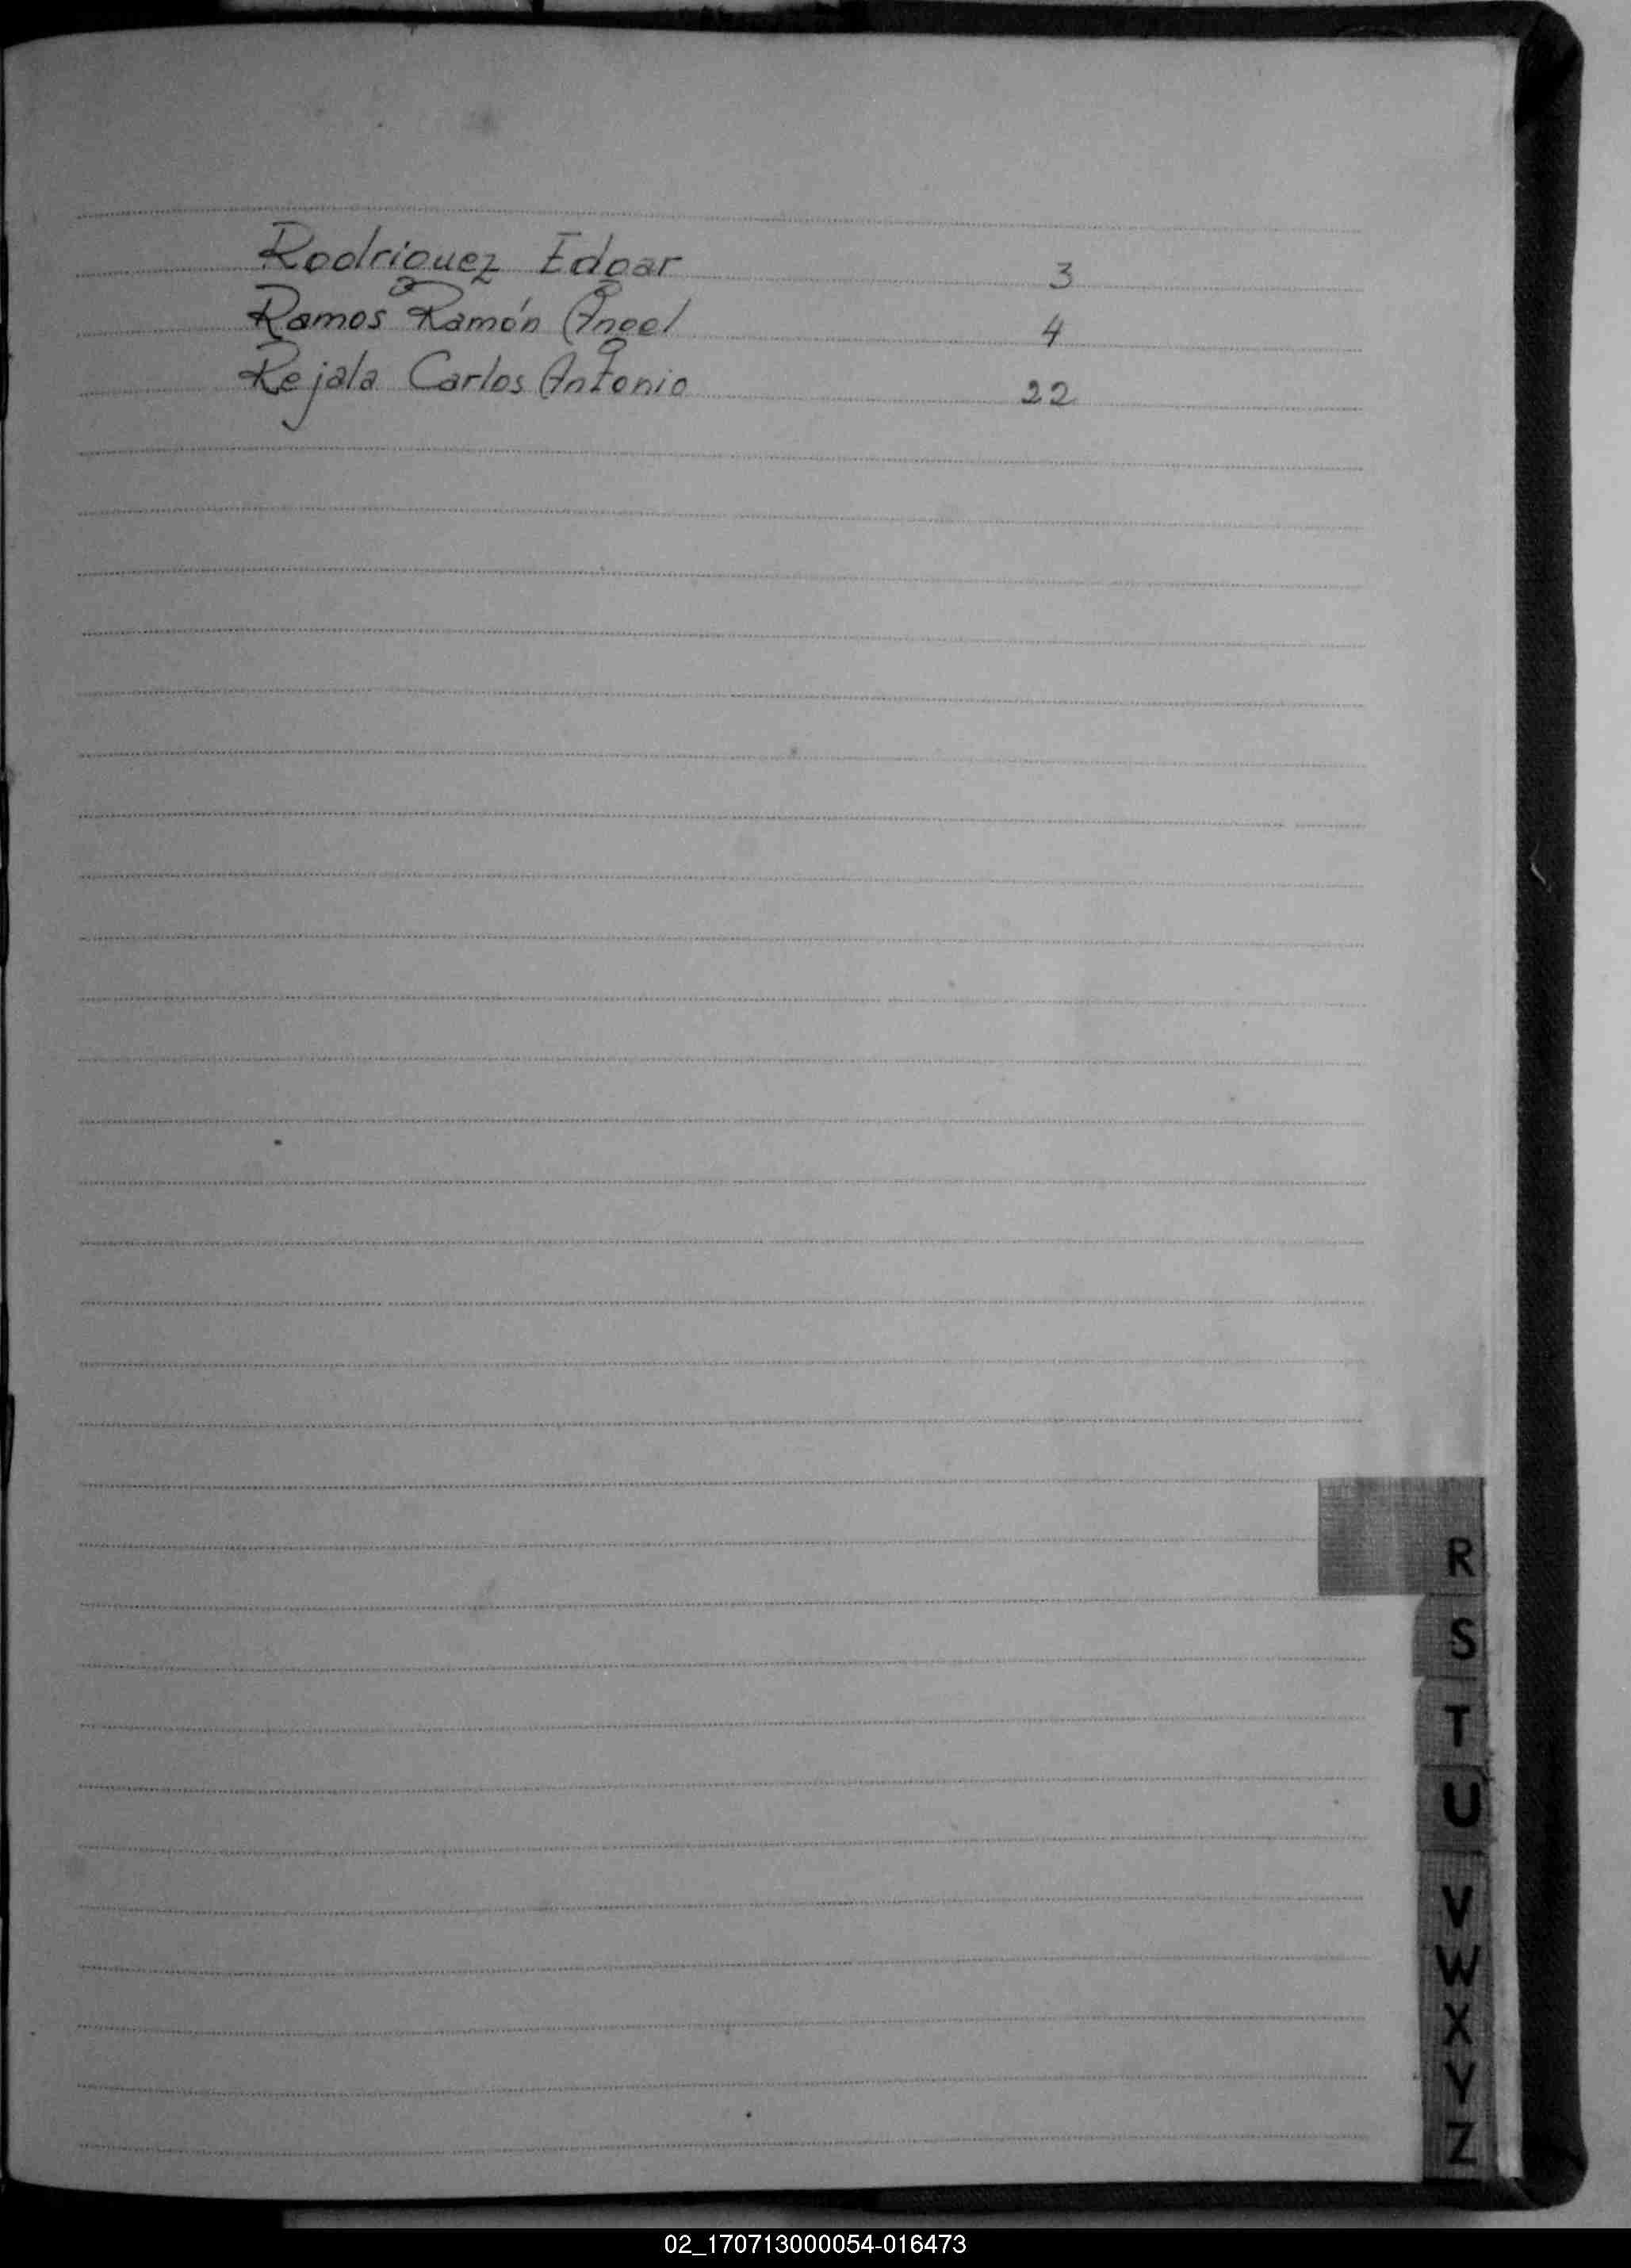 Rodriguez Edgar 3
Ramos Ramón Angel 4
Rejala Carlos Antonio 22
R
S
T
U
V
W
X
Y
Z
02_170713000054-016473